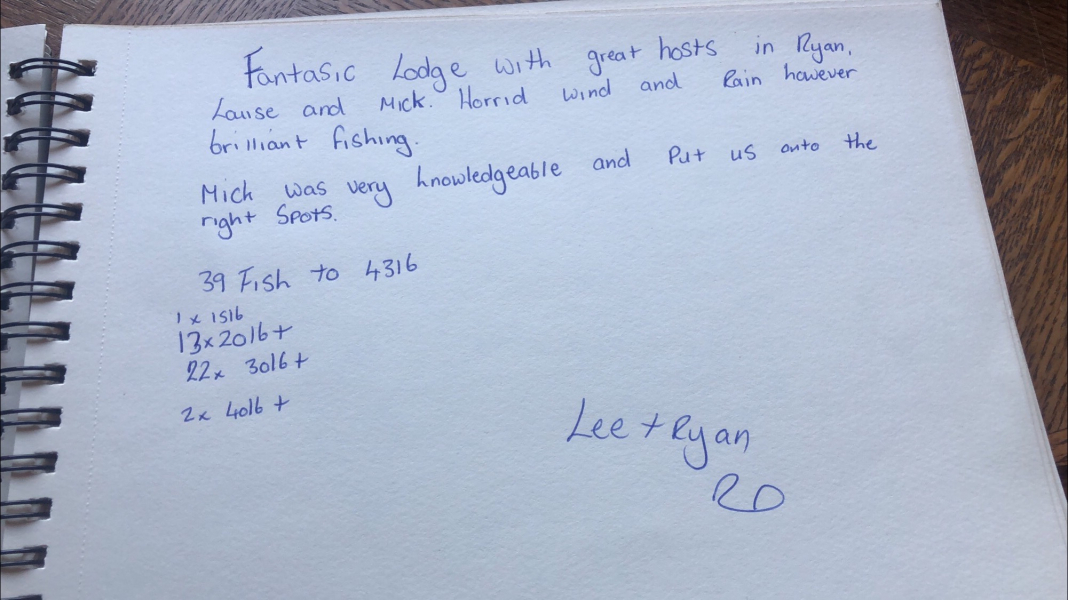 Fantasic Lodge with great hosts in Ryan,
Louise and Mick. Horrid wind and Rain however
brilliant fishing.
Mick was very knowledgeable and Put us onto the
right Spots.
39 Fish to 43lb
1 x 15lb
13x20lb+
22x 30lb+
2x 40lb+
Lee + Ryan
RD